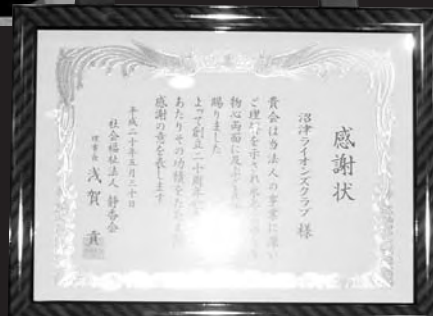 感謝状
沼津ライオンズクラブ 様
貴会は当法人の事業に深い
ご理解を示され永年に
物心両面に及ぶご
賜りました
よって創立二十周年に
あたりその功績をたたえ
感謝の意を表します
平成二十年五月三十日
社会福祉法人 静香会
理事長 浅賀 貢